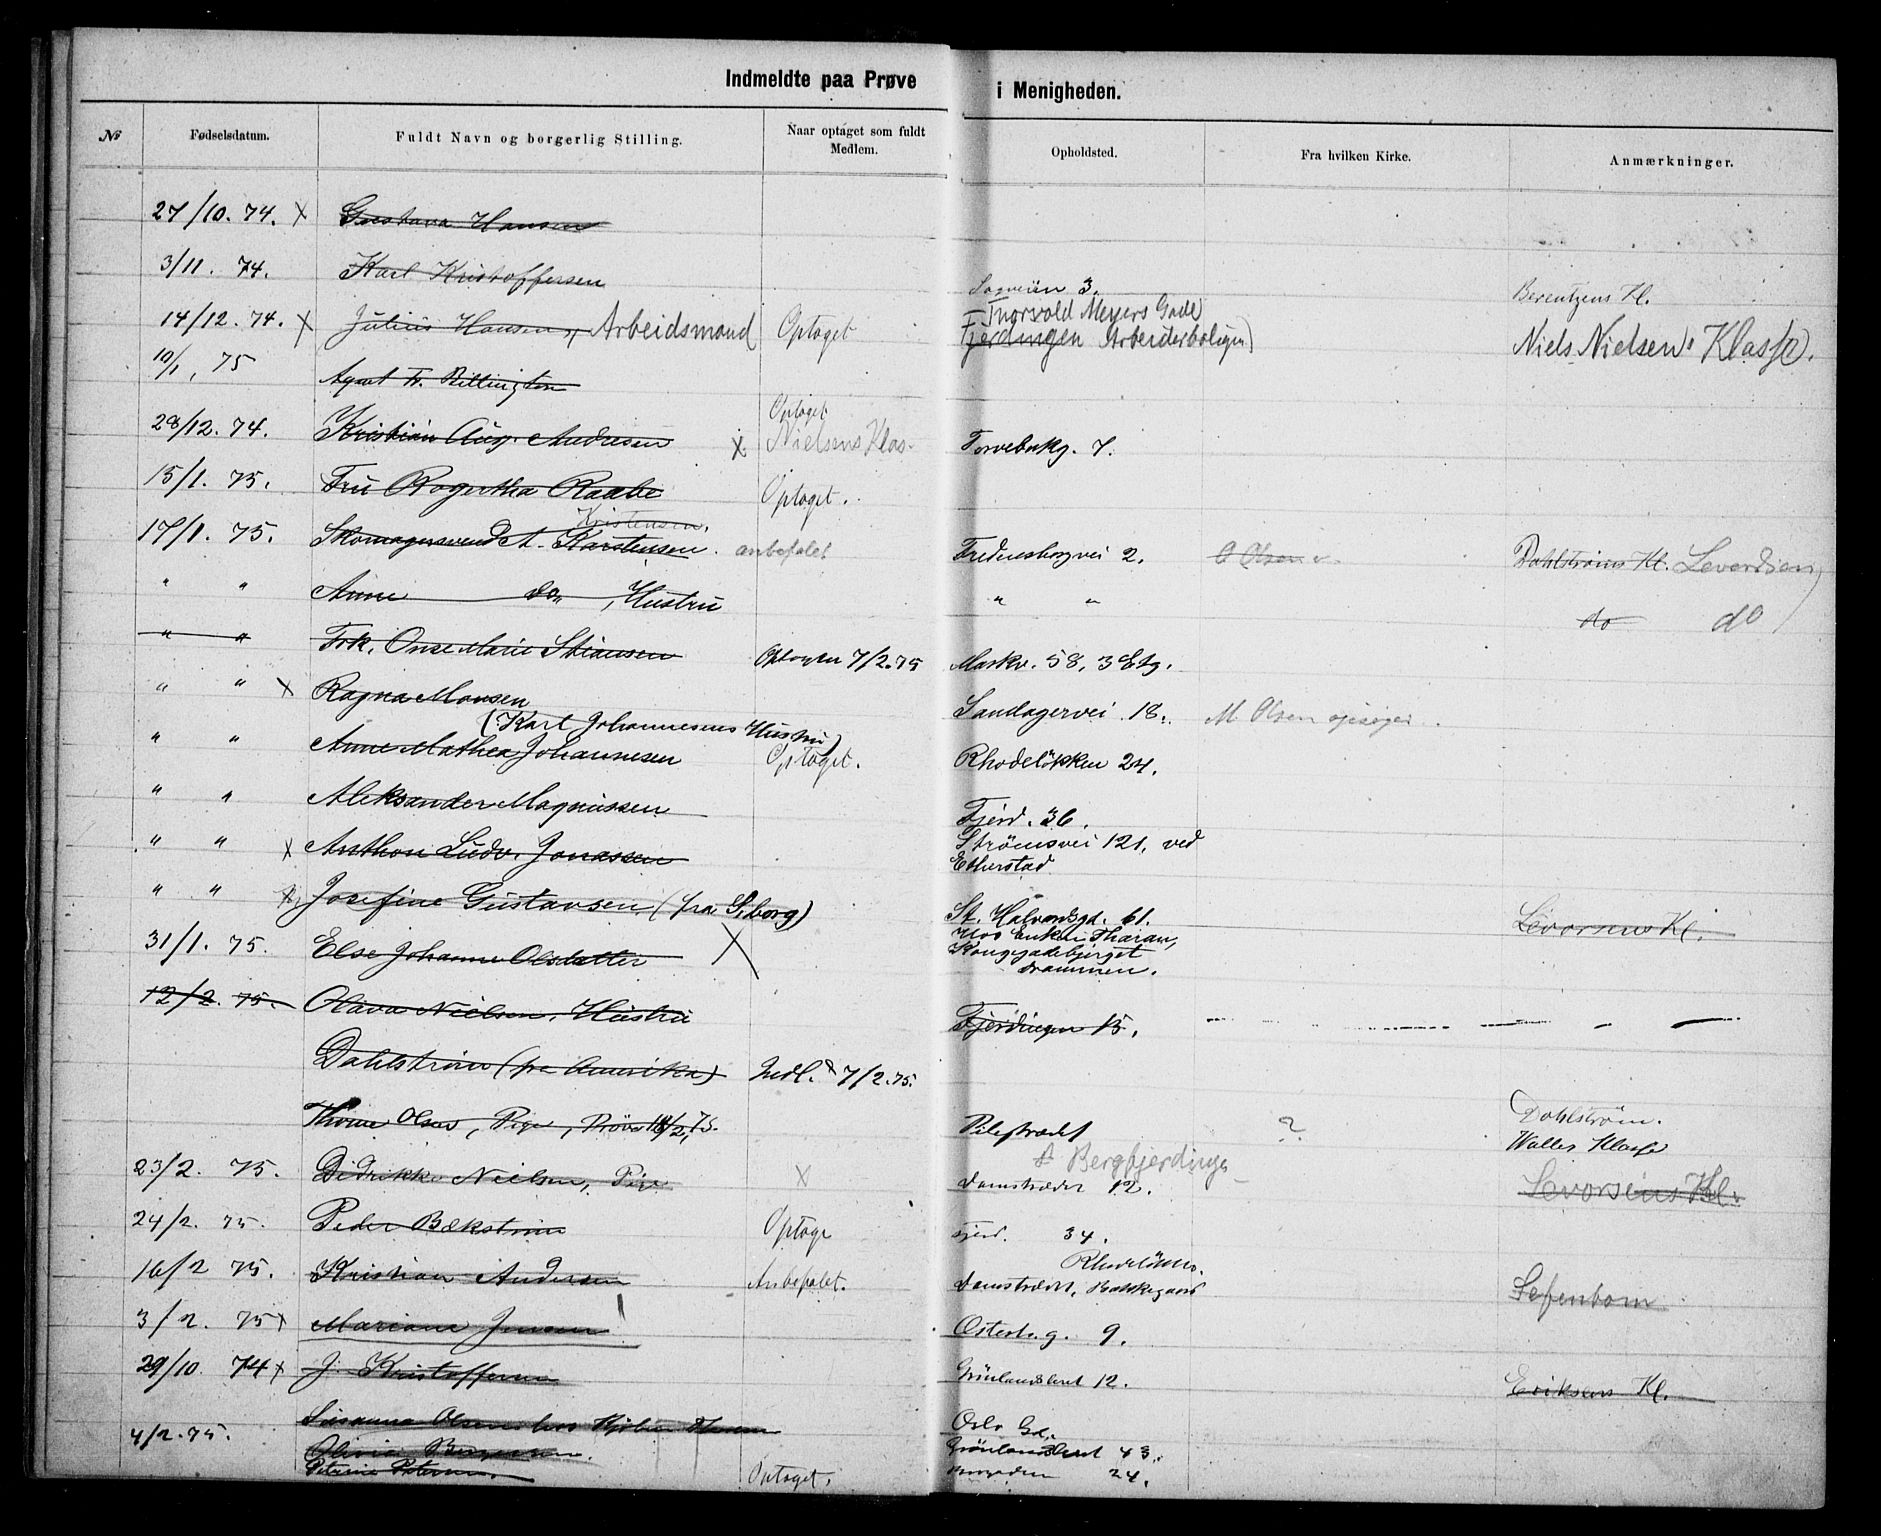 Indmeldte paa Prøve i Menigheden.
№ Fødselsdatum. Fuldt Navn og borgerlig Stilling. Naar optaget som fuldt Medlem. Opholdsted. Fra hvilken Kirke. Anmærkninger.
27/10. 74. x Gustava Hansen
3/11. 74. Karl Kristoffersen
Sagveien 3. Berentzens Kl.
14/12. 74. x Julius Hansen, Arbeidsmand Optaget Torvald Meyers Gade
Fjerdingen Arbeiderboligen) Niels Nielsens Klasse.
10/1, 75 Agnet Fr. Billington
Optaget
28/12. 74. Kristian Aug. Andresen x Nielsens Klas- Torvebakg. 7.
15/1. 75. Fru Rogertha Raabe Optaget.
Kristensen.
17/1. 75. Skomagersvend A. Karstensen. anbefalet Fredensborgvei 2. O Olsen Dahlstrøms Kl. Levordsen
" " Anne do, Hustru " " do do
" " Frk. Onse Marie Stiansen Optagen 7/2.75 Markv. 58, 3 Etg.
" " x Ragna Monsen Sandagervei 18. M Olsen
(Karl Johannesens Hustru)
" " Anne Mathea Johannesen Optaget. Rhodeløkken 24.
" " Aleksander Magnussen Fjerd. 36.
" " x Anthon Ludv. Jonassen Strömsvei 121, ved
Etterstad
" " x Josefine Gustavsen (fra S.borg) St. Halvardsgd. 61. Levorsens Kl.
31/1. 75. Else Johanne Olsdatter X Hos Enken Tharan,
Kongegadebjerget
Drammen.
12/2. 75. Olava Nielsen, Hustru Fjerdingen 15.
Dahlstrøm (fra Amerika) Indl. 7/2.75.
Thrine Olsen, Pige, Prøve 18/2, 75. Pilestrædet ? Dahlstrøm.
Walles Klasse
Bergfjerdingen
23/2. 75. Didrikke Nielsen, Pige x Damstrædet 12. Levorsens Kl.
24/2. 75. Peder Bækstrøm Optage Fjerd. 34.
Rhodeløkken.
16/2 75. Kristian Andersen Anbefalet. Damstrædet, Bakkegaard Sefenbom
3/2. 75 x Mariane Jensen Osterh.g. 9.
29/10. 74 x J. Kristoffersen Grönlandsleret 12. Eriksens Kl.
Susanna Olsen hos Oslo Gd.
4/2. 75. Olivia Grönlandsleret 43.
Petrine Petersen. Optaget. 24.